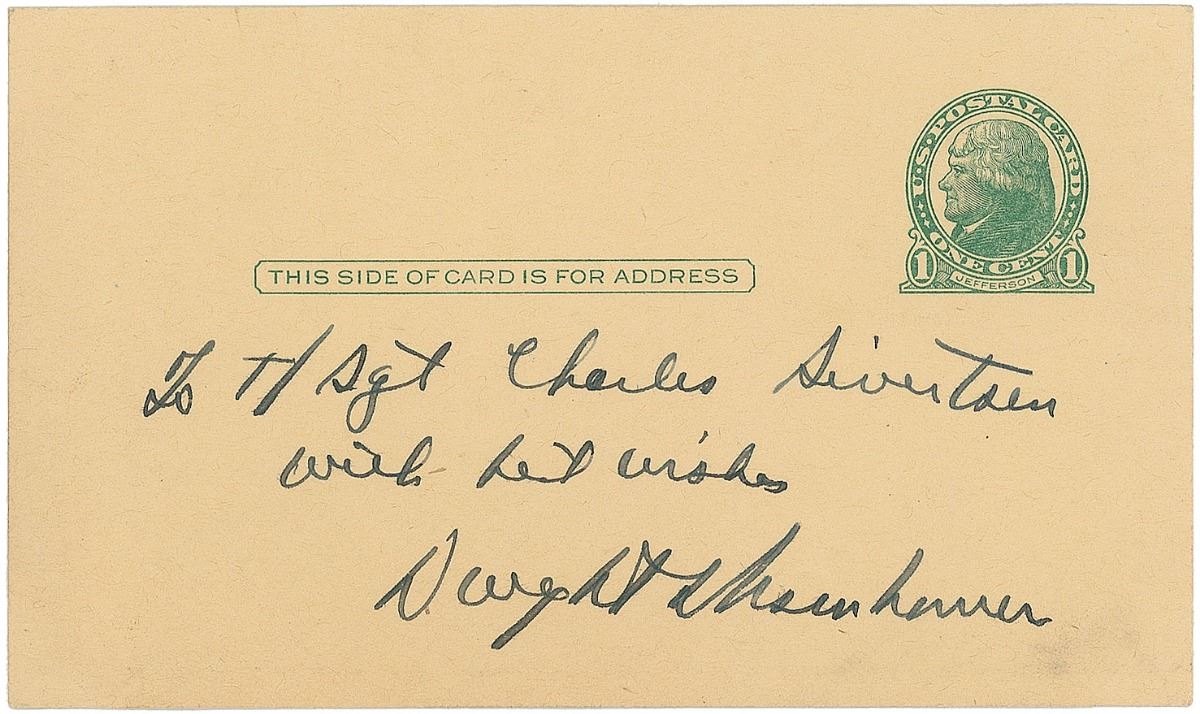 U.S. POSTAL CARD
ONE CENT
1 JEFFERSON 1
THIS SIDE OF CARD IS FOR ADDRESS
To T/Sgt Charles Sivertsen
with best wishes
Dwight D Eisenhower